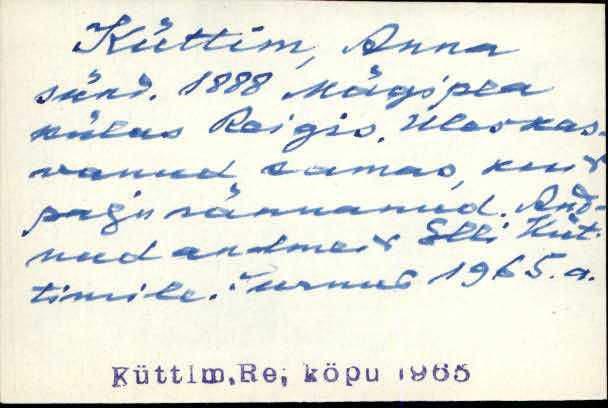 Küttim, Anna
sünd. 1888 Mägipea
külas Reigis. Üleskas-
vanud samas, kuid
palju rännanud. And-
nud andmeid Elli Küt-
timile. Surnud 1965.a.
Küttim, Rei, köpu 1965